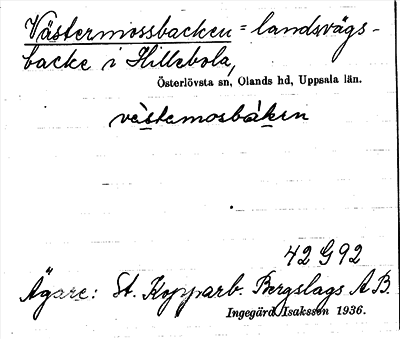 Västermossbacken = landsvägs-
backe i Hillebola,
Österlövsta sn, Olands hd, Uppsala län.
vèstemosbàken
42 G 92
Ägare: St. Kopparb. Bergslags A.B.
Ingegärd Isaksson 1936.